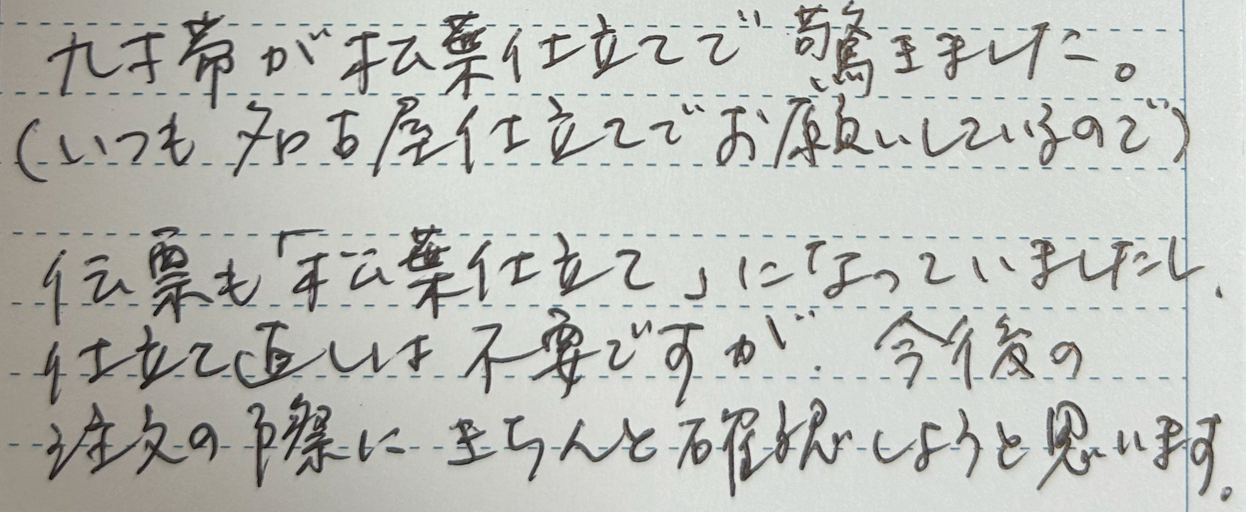 九寸帯が松葉仕立てで驚きました。
(いつも名古屋仕立てでお願いしているので)
伝票も「松葉仕立て」になっていましたし、
仕立て直しは不要ですが、今後の
注文の際にきちんと確認しようと思います。